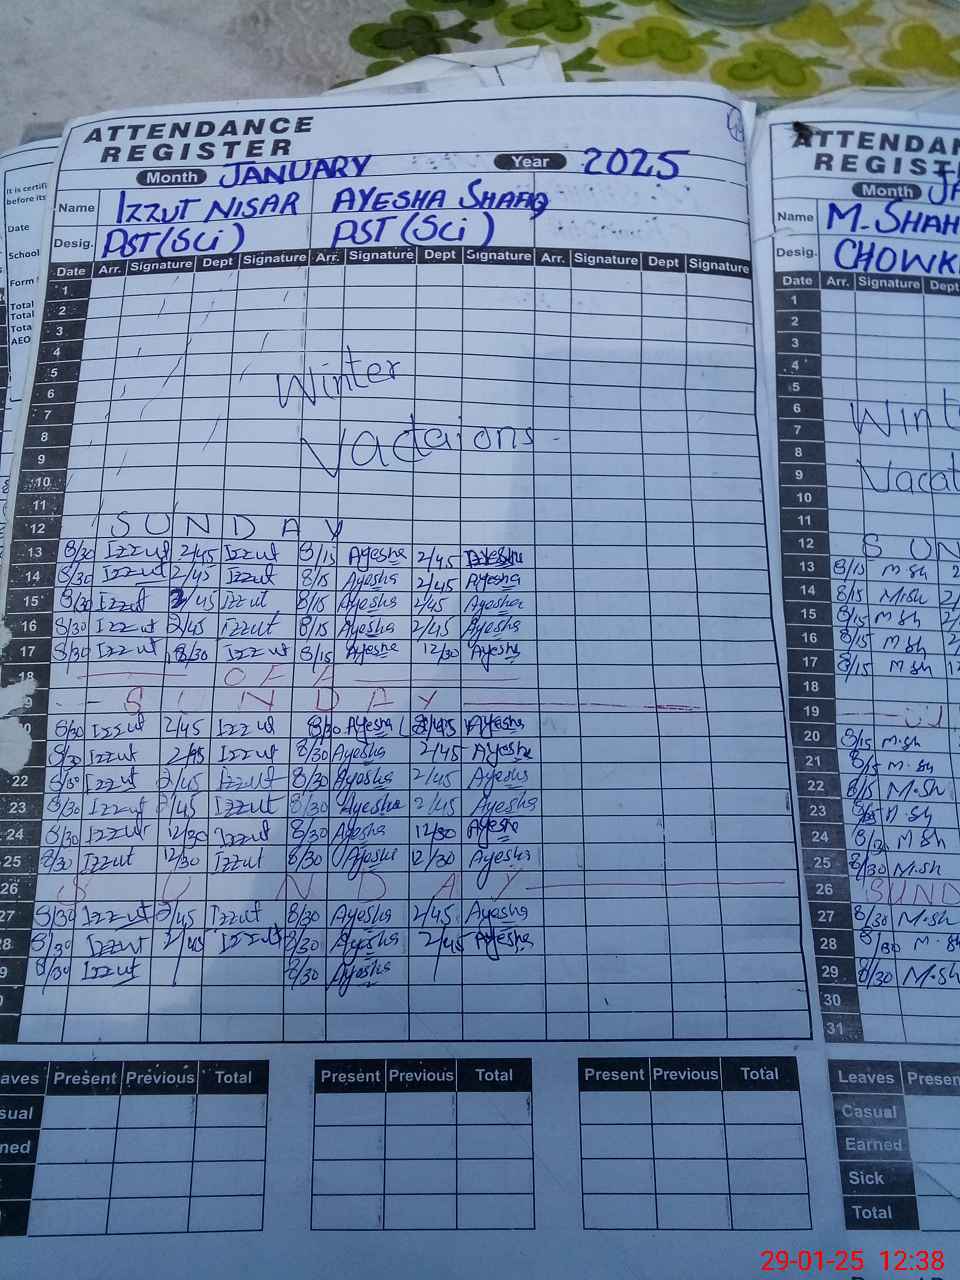 ATTENDANCE
REGISTER
Month JANUARY Year 2025
Name IZZUT NISAR AYESHA SHAFIQ
Desig. PST (Sci) PST (Sci)
Date Arr. Signature Dept Signature Arr. Signature Dept Signature Arr. Signature Dept Signature
1
2
3
4
5
6
7
8
9
10
11
Winter
Vactaions
12 SUNDAY
13 8/30 Izzut 2/45 Izzut 8/15 Ayesha 2/45 Ayesha
14 8/30 Izzut 2/45 Izzut 8/15 Ayesha 2/45 Ayesha
15 8/30 Izzut 2/45 Izzut 8/15 Ayesha 2/45 Ayesha
16 8/30 Izzut 2/45 Izzut 8/15 Ayesha 2/45 Ayesha
17 8/30 Izzut Izzut 8/15 Ayesha 12/30 Ayesha
18 OFF
9 SUNDAY
8/30 Izzut 2/45 Izzut 8/30 Ayesha Ayesha
8/30 Izzut 2/45 Izzut 8/30 Ayesha 2/45 Ayesha
22 8/30 Izzut 2/45 Izzut 8/30 Ayesha 2/45 Ayesha
23 8/30 Izzut 2/45 Izzut 8/30 Ayesha 2/45 Ayesha
24 8/30 Izzut 12/30 Izzut 8/30 Ayesha 12/30 Ayesha
25 8/30 Izzut 12/30 Izzut 8/30 Ayesha 12/30 Ayesha
26 SUNDAY
27 8/30 Izzut 2/45 Izzut 8/30 Ayesha 2/45 Ayesha
28 8/30 Izzut 2/45 Izzut 8/30 Ayesha 2/45 Ayesha
9 8/30 Izzut 8/30 Ayesha
eaves Present Previous Total Present Previous Total Present Previous Total
sual
ned
ATTENDAN
REGIST
Month JA
Name M. SHAH
Desig. CHOWK
Date Arr. Signature Dept
1
2
3
4
5
6
7
8
9
10
11
Wint
Vacat
12 SUN
13 8/15 M.Sh
14 8/15 M.Sh
15 8/15 M.Sh
16 8/15 M.Sh
17 8/15 M.Sh
18
19
20 8/15 M.Sh
21 8/15 M.Sh
22 8/15 M.Sh
23 M.Sh
24 8/30 M.Sh
25 8/30 M.Sh
26 SUND
27 8/30 M.Sh
28 8/30 M.Sh
29 8/30 M.Sh
30
31
Leaves Presen
Casual
Earned
Sick
Total
It is certifi
before its
Date
School
Form
Total
Total
Tota
AEO
29-01-25 12:38